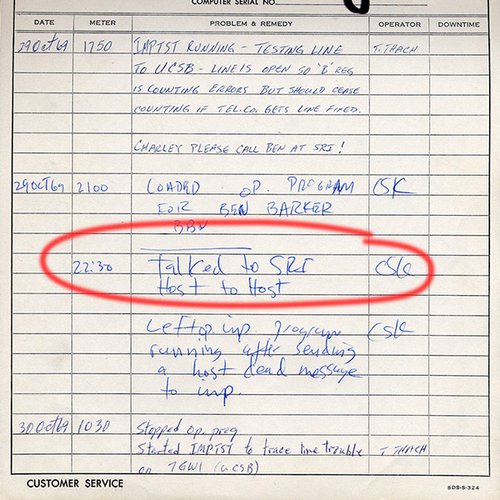 COMPUTER SERIAL NO.
DATE METER PROBLEM & REMEDY OPERATOR DOWNTIME
29Oct69 1750 IMPTST RUNNING - TESTING LINE T. THACH
TO UCSB - LINE IS OPEN SO 'B' REG
IS COUNTING ERRORS BUT SHOULD CEASE
COUNTING IF TEL.CO. GETS LINE FIXED.
CHARLEY PLEASE CALL BEN AT SRI!
29OCT69 2100 LOADED OP. PROGRAM CSK
FOR BEN BARKER
BBN
22:30 Talked to SRI CSK
Host to Host
Left op. imp. program CSK
running after sending
a host dead message
to imp.
30Oct69 1030 Stopped op. prog
Started IMPTST to trace line trouble T THACH
on (UCSB)
CUSTOMER SERVICE
SDS-S-324